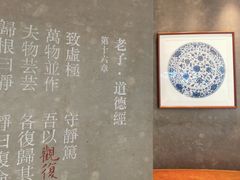 老子·道德經
第十六章
致虛極 守靜篤
萬物並作 吾以觀復
夫物芸芸 各復歸其
歸根曰靜 靜曰復